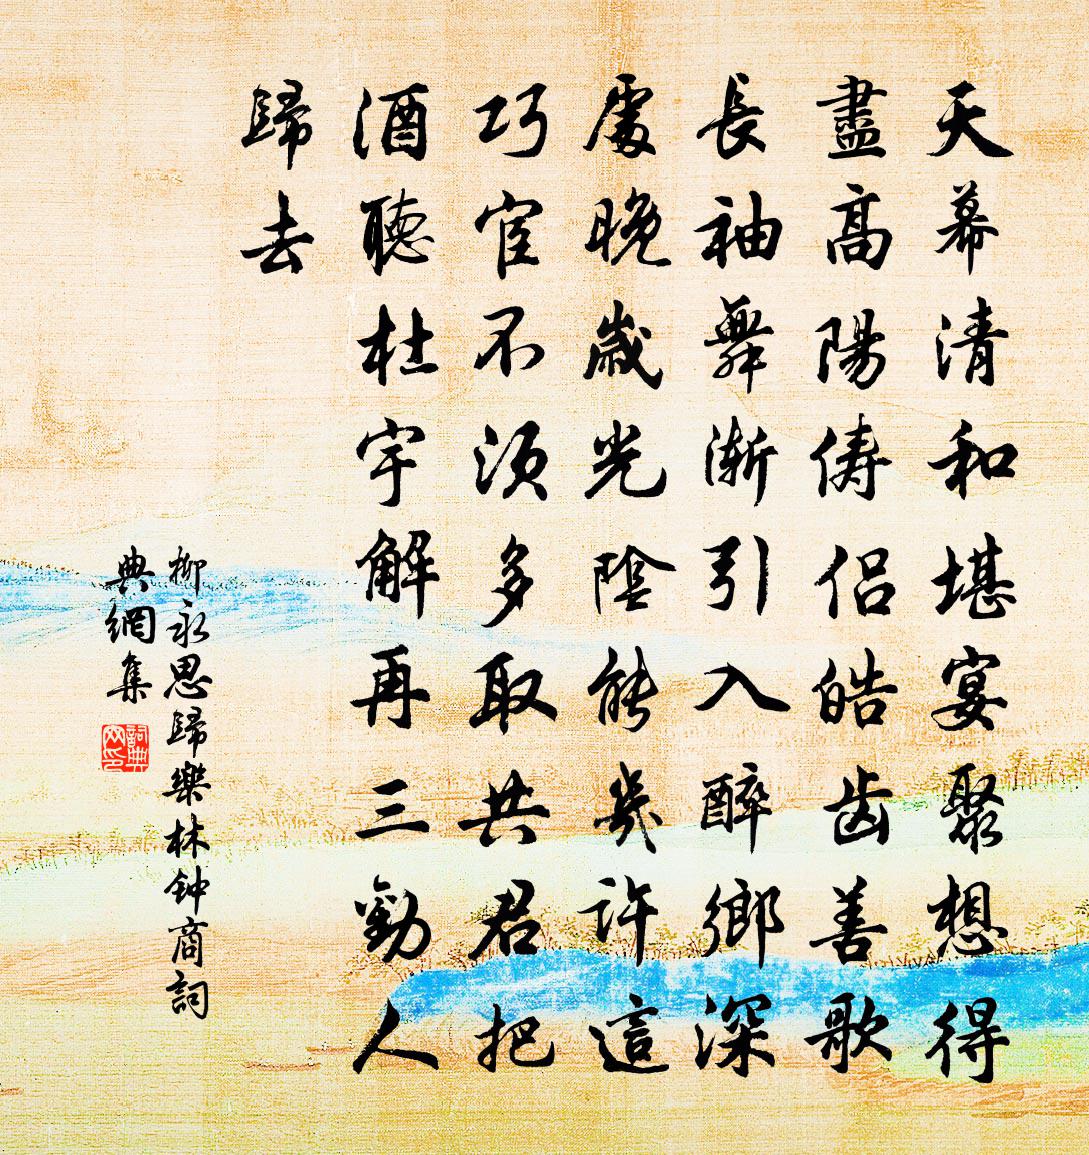 天幕清和堪宴聚想得
盡高陽儔侶皓齿善歌
長袖舞漸引入醉鄉深
處晚歲光陰能幾許這
巧宦不須多取共君把
酒聽杜宇解再三勸人
歸去
柳永思歸樂林钟商詞
典網集
詞典
网印